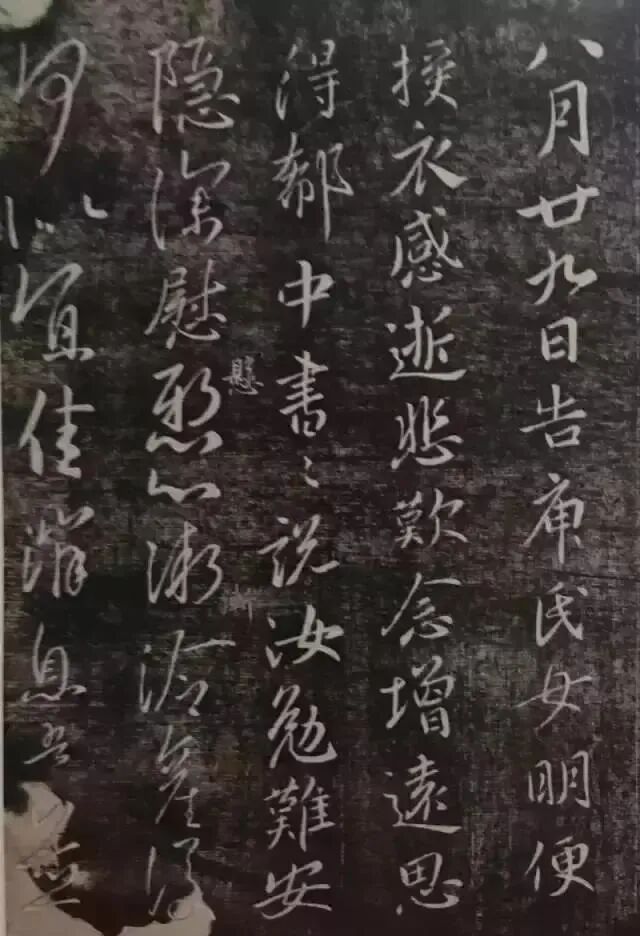 八月廿九日告庾氏女明便
授衣感逝悲歎念增遠思
得郗中書〻說汝勉難安
隱深慰懸心漸冷產後
懸
何以宜佳消息吾